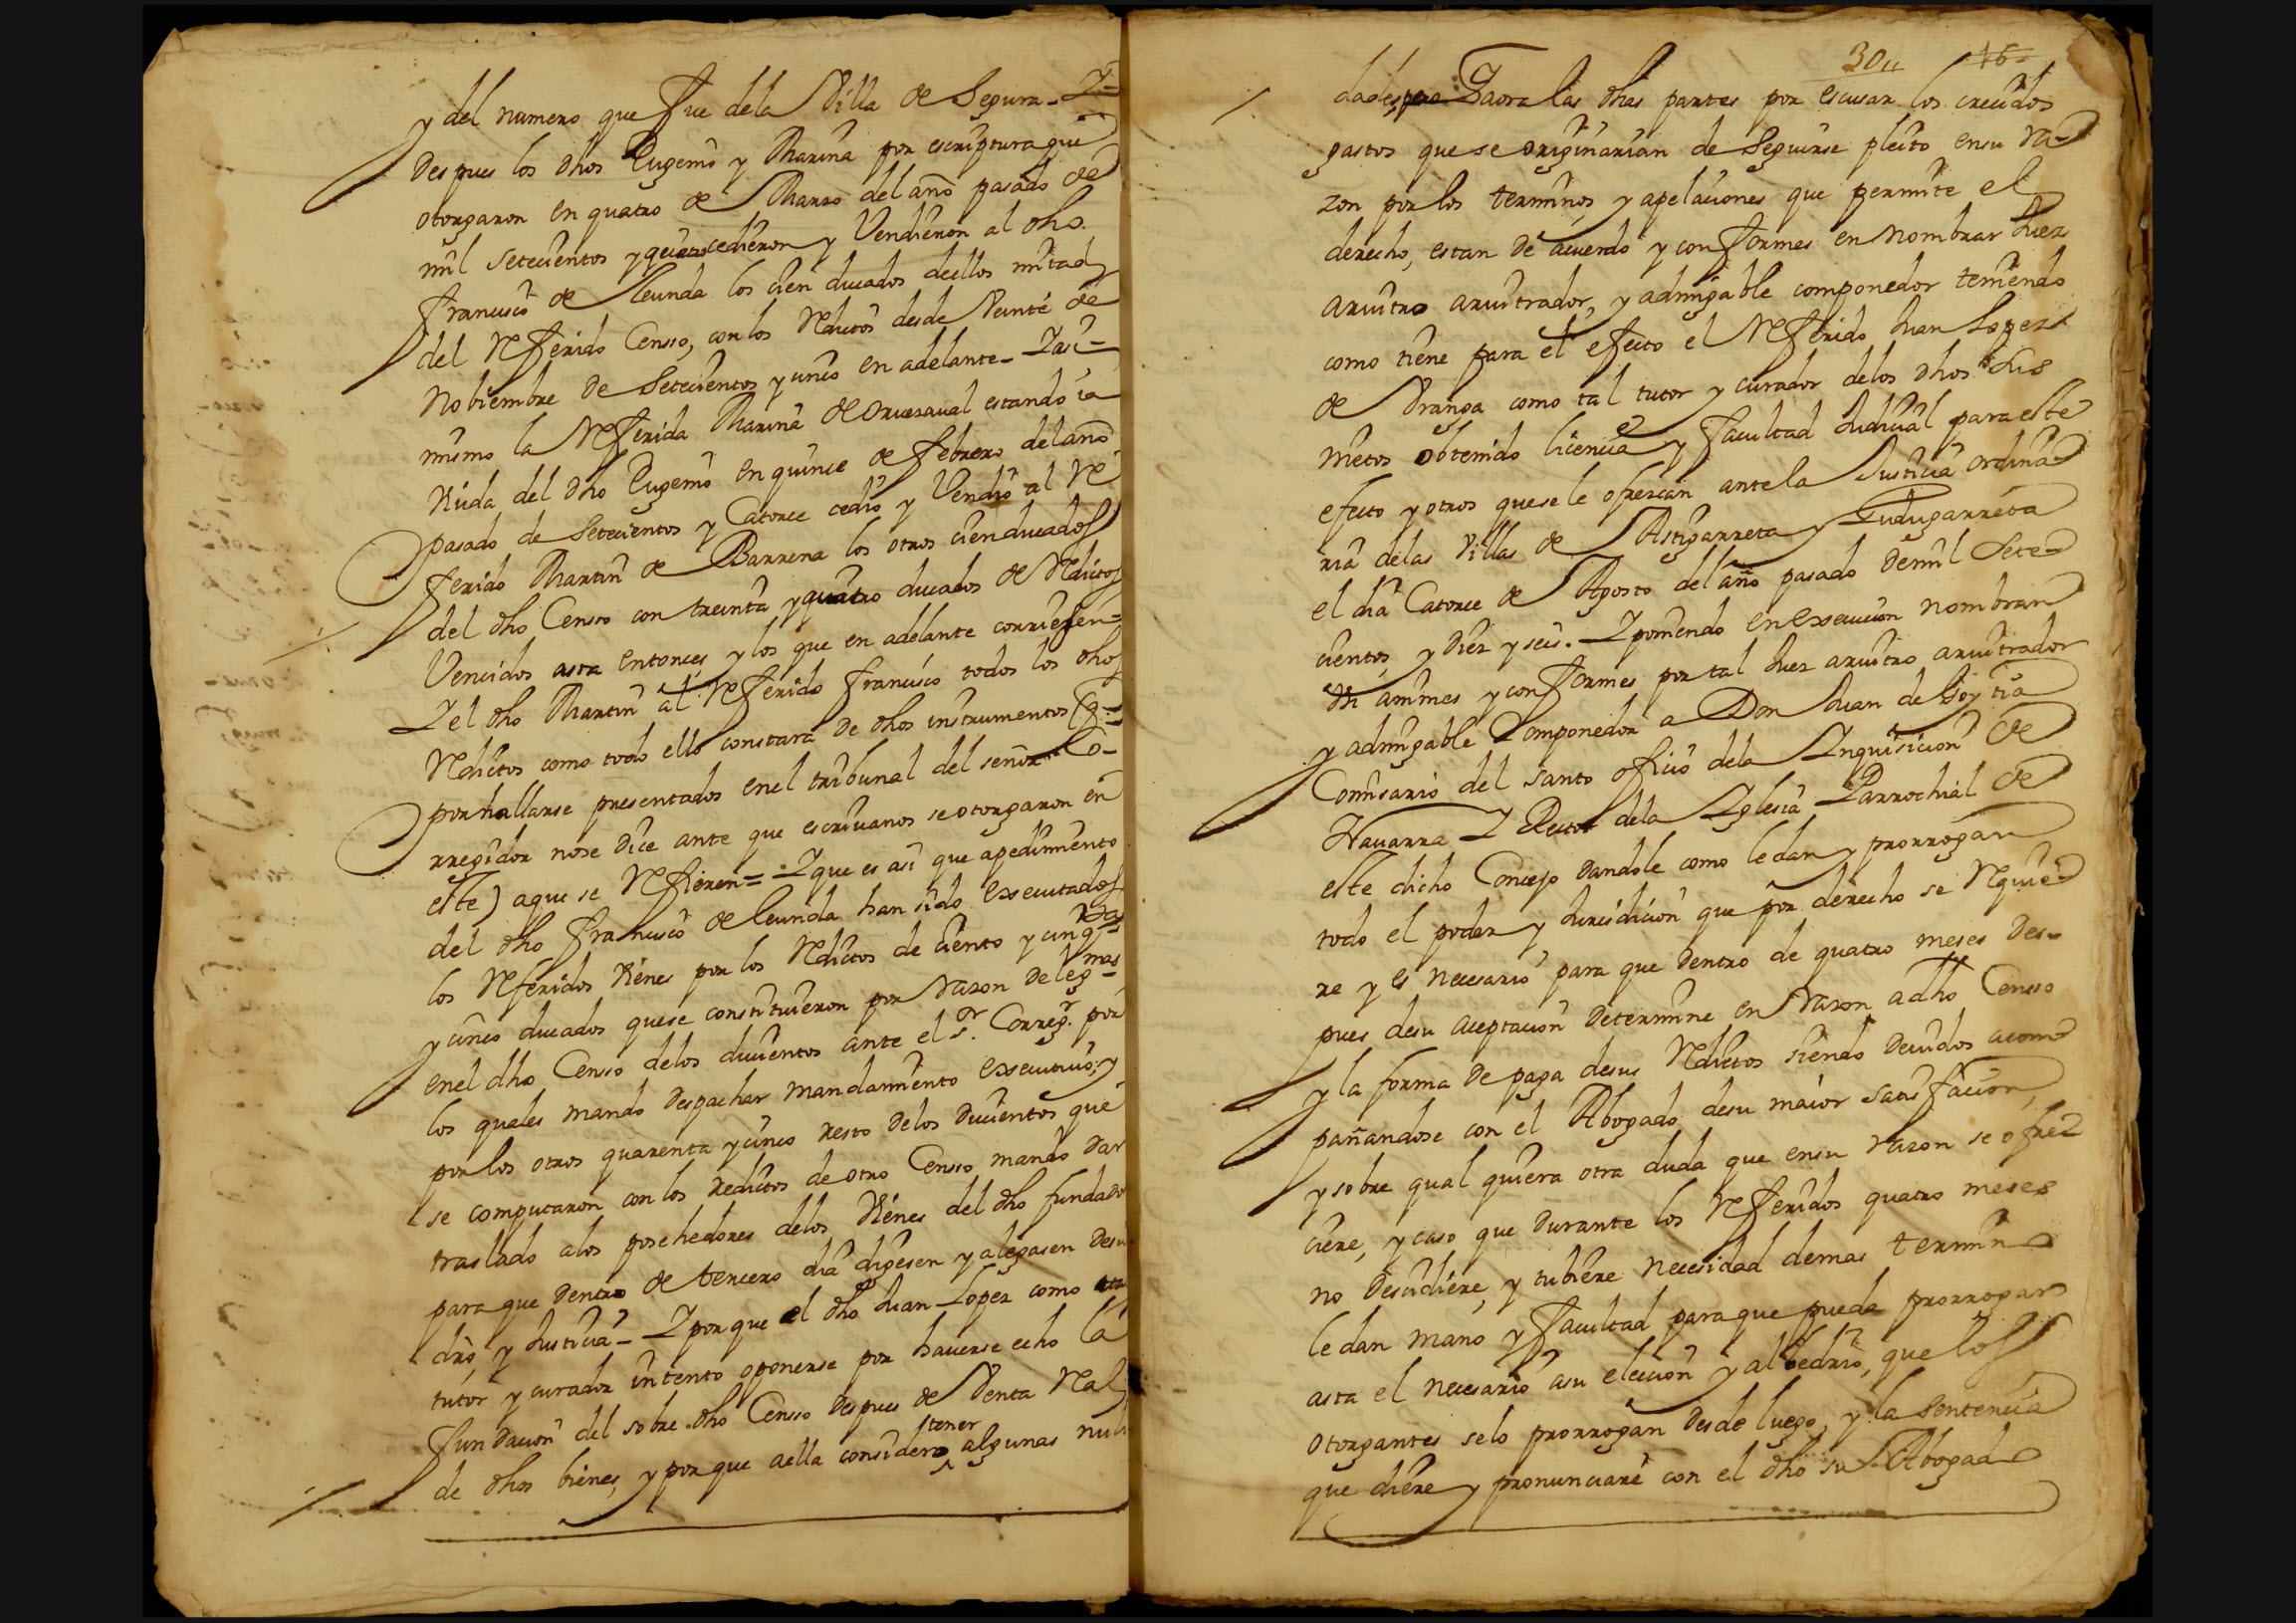 y del numero que fue dela Villa de Segura - Y -
Despues los dhos Eugenio y Marina por escriptura que
otorgaron en quatro de Marzo del año pasado de
mil setecientos y quatro cedieron y Vendieron al dho
francisco de Leunda los cien ducados dellos mitad
del Referido Censso, con los Reditos desde Veinte de
Nobiembre de Setecientos y cinco en adelante - Y asi -
mismo la Referida Marina de estando ia
Viuda del dho Eugenio en quince de febrero del año
pasado de Setecientos y Catorce cedio y Vendio al Re
ferido Martin de Barrena los otros cien ducados
del dho Censso con treinta y quatro ducados de Reditos
Vencidos asta entonces y los que en adelante corriesen =
Y el dho Martin al Referido francisco todos los dhos
Reditos como todo ello constara de dhos instrumentos (q =
por hallarse presentados enel tribunal del señor Co -
rregidor nose dice ante que escriuanos se otorgaron en
este) aque se Refieren = Y que es asi que apedimiento
del dho francisco de leunda han sido executados
los Referidos Vienes por los Reditos de ciento y cinqta
y cinco ducados quese constituieron por razon de legmas
enel dho Censso delos ducientos ante el Sr. Correg.r por
los quales mando despachar mandamiento executiuo: y
por los otros quarenta y cinco resto delos Ducientos que
se computaron con los redictos de otro Censso mando dar
traslado alos posehedores delos Vienes del dho fundador
para que Dentro de tercero dia digesen y alegasen desu
dro y Justicia - Y porque el dho Juan Lopez como
tutor y curador intento oponerse por hauerse echo la
fundacion del sobre dho Censso Despues de Venta Real
tener
de dhos bienes, y por que aella considero algunas nuli
30 16
dades Y aora las dhas partes por escusar los crecidos
gastos que se originarian de Seguirse pleito ensu Ra
zon por los terminos y apelaciones que permite el
derecho, estan de acuerdo y conformes en Nombrar Juez
arvitro arvitrador, y admigable componedor teniendo
como tiene para el efecto el Referido Juan Lopez
de Vranga como tal tutor y curador delos dhos sus
Nietos obtenido licencia y facultad Judicial para este
efecto y otros quese le ofrezcan ante la Justicia ordina
ria delas Villas de Astigarreta y Gudugarreta
el dia Catorce de Agosto del año pasado de mil Sete
cientos y diez y seis. Y poniendo en execucion nombran
Vn animes y conformes por tal Juez arvitro arvitrador
y admigable Componedor a Don Juan de Goytia
Comisario del santo oficio dela Inquisicion de
Nauarra Y Rector dela Yglesia Parrochial de
este dicho Concejo dandole como le dan y prorrogan
todo el poder y Jurisdicion que por derecho se Requie
re y es necesario para que dentro de quatro meses Des -
pues desu aceptacion determine en razon adho Censso
y la forma de paga desus Reditos siendo Deuidos acom
pañandose con el Abogado desu maior satisfacion,
y sobre qual quiera otra duda que ensu razon se ofre
ciere, y caso que durante los Referidos quatro meses
no descidiere, y tubiere necesidad demas termino
le dan mano y facultad para que pueda prorrogar
asta el necesario asu eleccion y albedrio, que los
Otorgantes selo prorrogan desde luego, y la Sentencia
que diere y pronunciare con el dho su Abogado